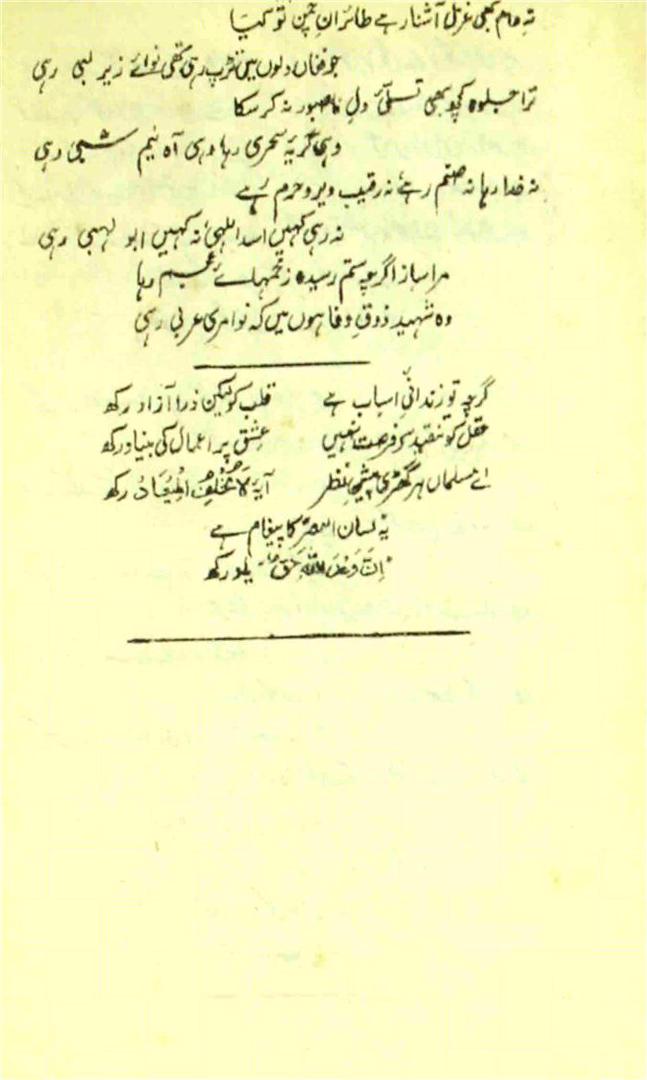 تہِ دام بھی غزل آشنا رہے طائرانِ چمن تو کیا
جو فغاں دلوں میں تڑپ رہی تھی نوائے زیر لبی رہی
ترا جلوہ کچھ بھی تسلّیٔ دلِ ناصبور نہ کر سکا
وہی گریۂ سحری رہا وہی آہ نیم شبی رہی
نہ خدا رہا نہ صنم رہے نہ رقیب دیر و حرم رہے
نہ رہی کہیں اسد اللہی نہ کہیں ابو لہبی رہی
مرا ساز اگرچہ ستم رسیدہ زخمہائے عجم رہا
وہ شہید ذوقِ وفا ہوں میں کہ نوا مری عربی رہی
گرچہ تو زندانیٔ اسباب ہے قلب کو لیکن ذرا آزاد رکھ
عقل کو تنقید سے فرصت نہیں عِشق پر اعمال کی بنیاد رکھ
اے مسلماں ہر گھڑی پیشِ نظر آیۂ لَا یُخْلِفُ الْمِیْعَادُ رکھ
یہ لسان العصر کا پیغام ہے
"اِنَّ وَعْدَ اللّٰهِ حَقٌّ" یاد رکھ